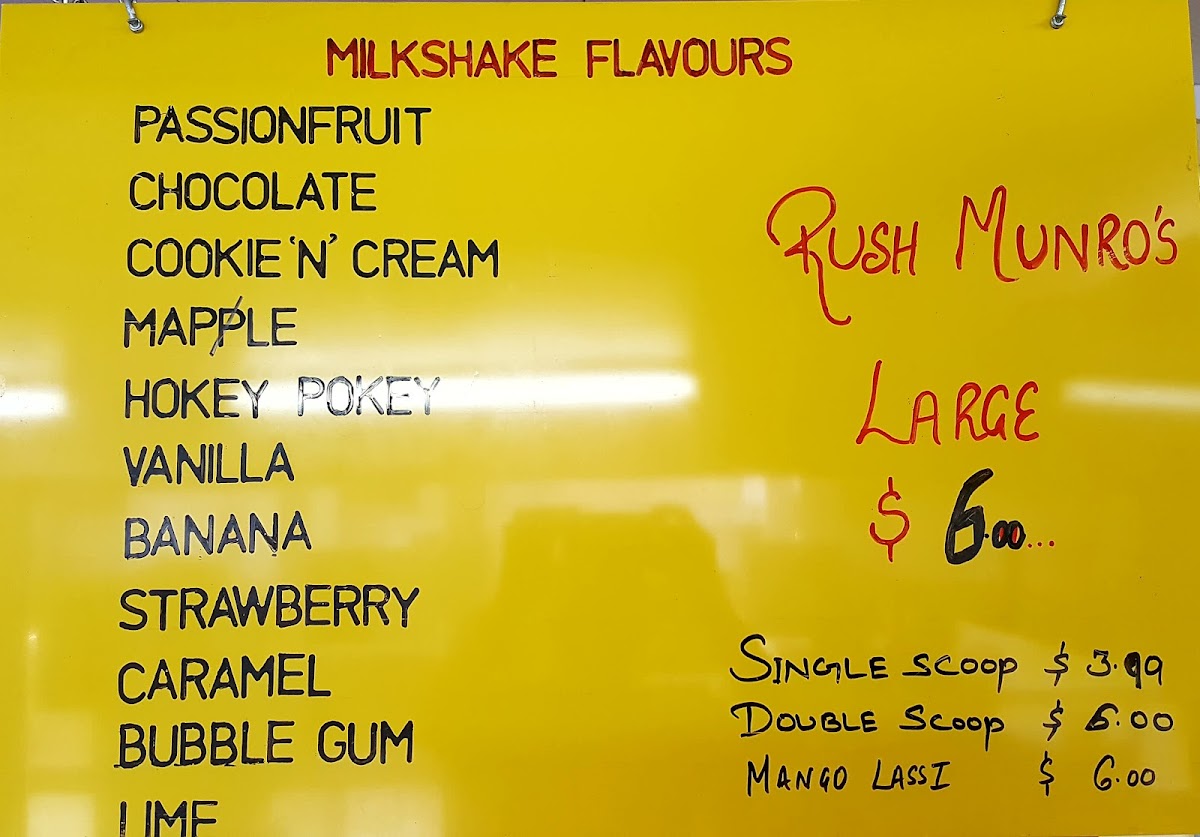 MILKSHAKE FLAVOURS
PASSIONFRUIT
CHOCOLATE
COOKIE 'N' CREAM
MAPPLE
HOKEY POKEY
VANILLA
BANANA
STRAWBERRY
CARAMEL
BUBBLE GUM
LIME
RUSH MUNRO'S
LARGE
$ 6.00...
SINGLE SCOOP $ 3.99
DOUBLE SCOOP $ 6.00
MANGO LASSI $ 6.00